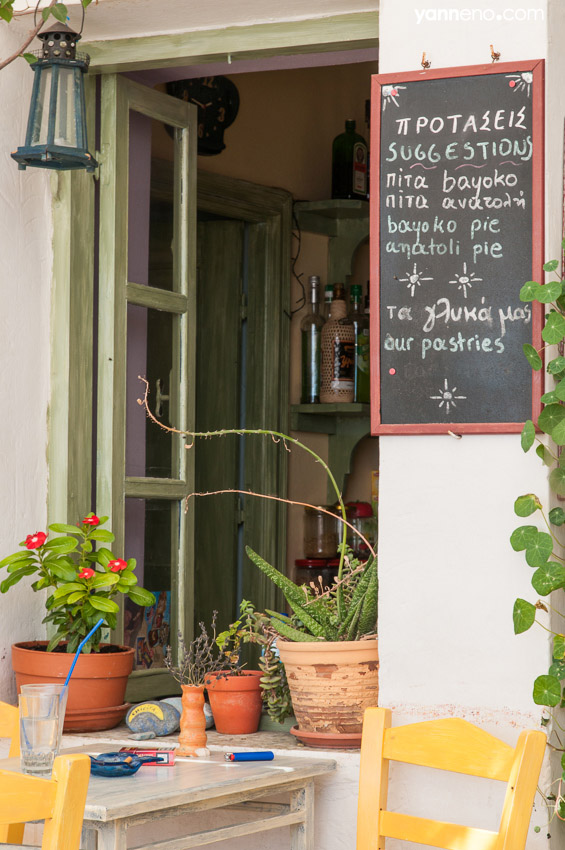 yanneno.com
ΠΡΟΤΑΣΕΙΣ
SUGGESTIONS
πίτα bayoko
πίτα ανατολή
bayoko pie
anatoli pie
τα γλυκά μας
our pastries